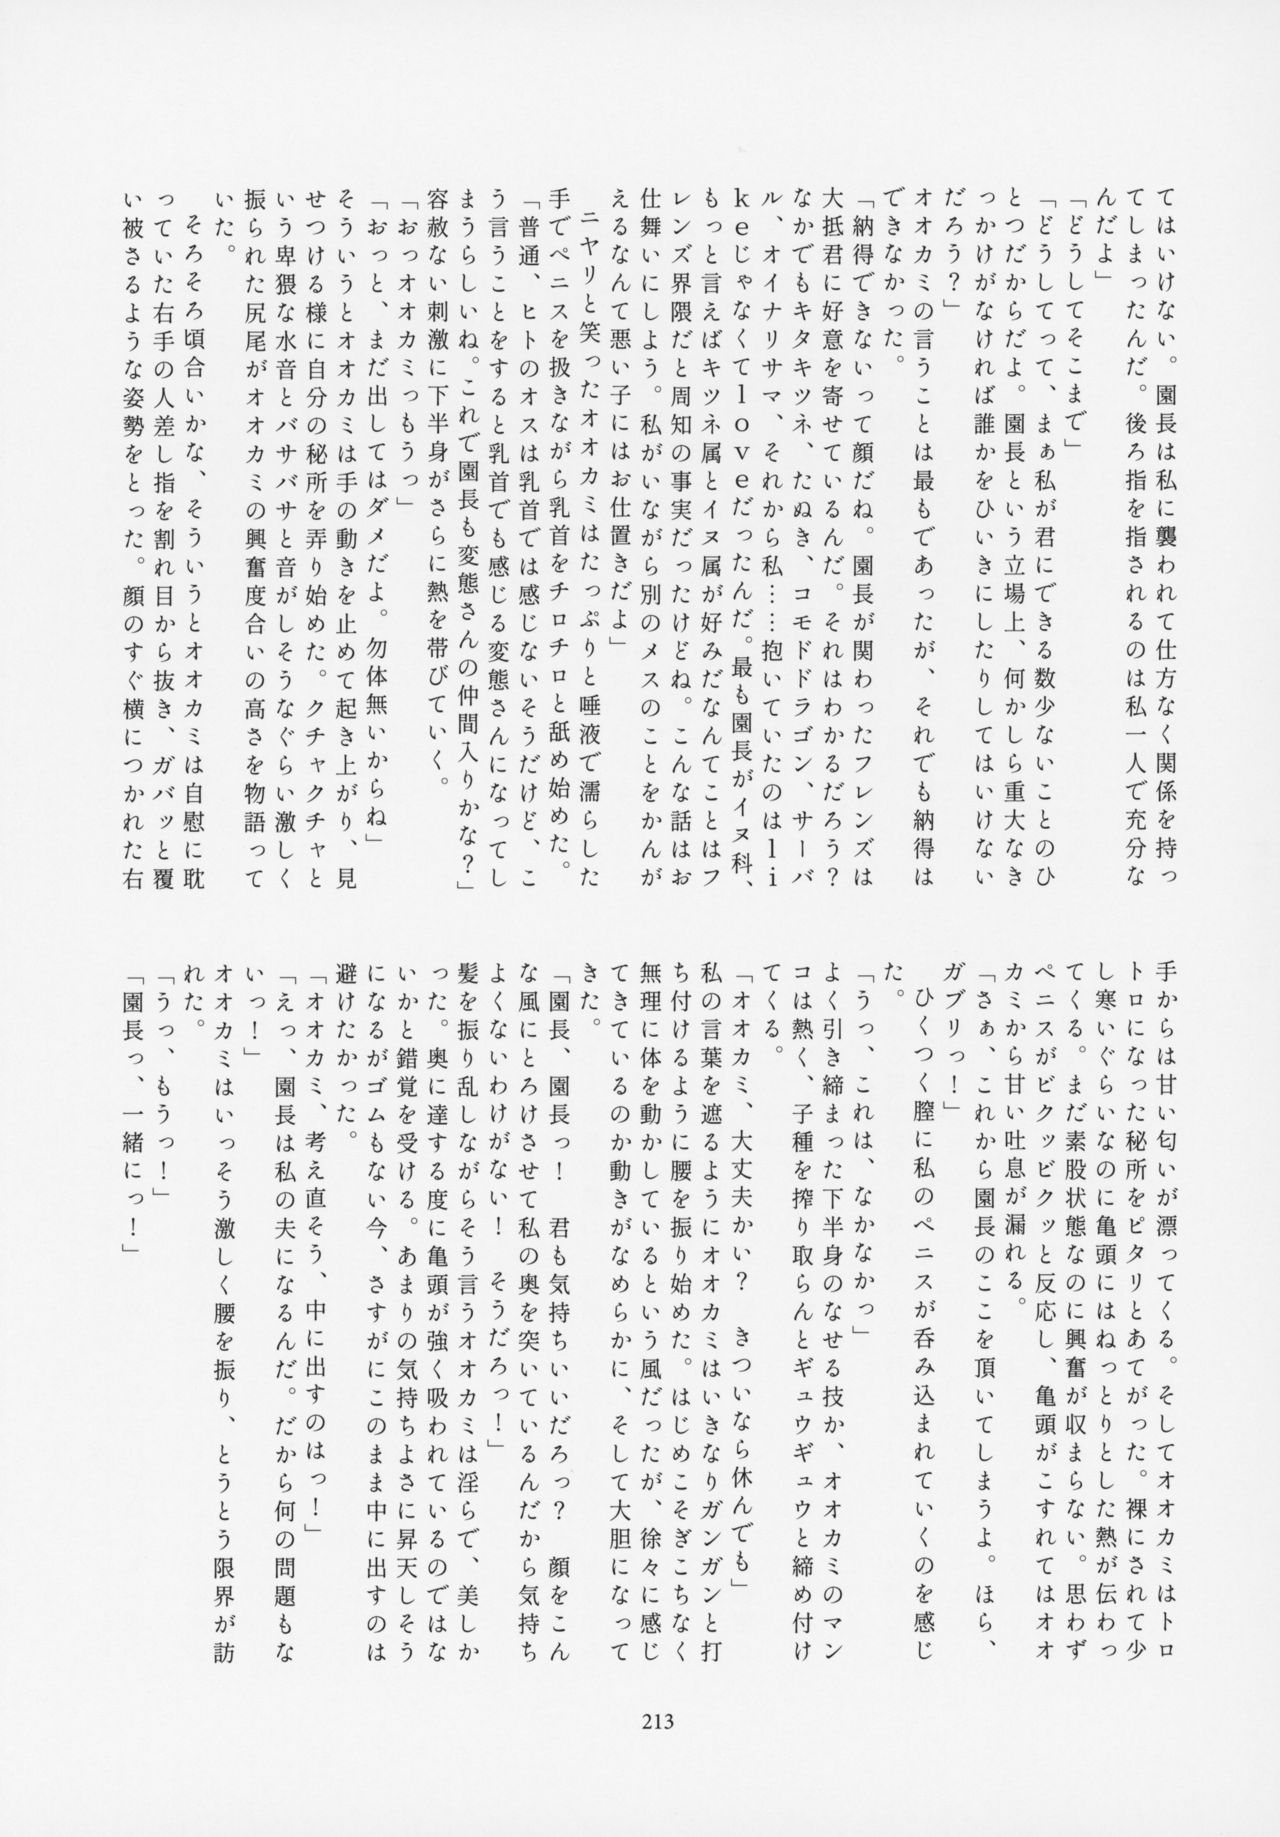 てはいけない。園長は私に襲われて仕方なく関係を持っ
てしまったんだ。後ろ指を指されるのは私一人で充分な
んだよ」
「どうしてそこまで」
「どうしてって、まぁ私が君にできる数少ないことのひ
とつだからだよ。園長という立場上、何かしら重大なき
っかけがなければ誰かをひいきにしたりしてはいけない
だろう？」
オオカミの言うことは最もであったが、それでも納得は
できなかった。
「納得できないって顔だね。園長が関わったフレンズは
大抵君に好意を寄せているんだ。それはわかるだろう？
なかでもキタキツネ、たぬき、コモドドラゴン、サーバ
ル、オイナリサマ、それから私……抱いていたのはｌｉ
ｋｅじゃなくてｌｏｖｅだったんだ。最も園長がイヌ科、
もっと言えばキツネ属とイヌ属が好みだなんてことはフ
レンズ界隈だと周知の事実だったけどね。こんな話はお
仕舞いにしよう。私がいながら別のメスのことをかんが
えるなんて悪い子にはお仕置きだよ」
　ニヤリと笑ったオオカミはたっぷりと唾液で濡らした
手でペニスを扱きながら乳首をチロチロと舐め始めた。
「普通、ヒトのオスは乳首では感じないそうだけど、こ
う言うことをすると乳首でも感じる変態さんになってし
まうらしいね。これで園長も変態さんの仲間入りかな？」
容赦ない刺激に下半身がさらに熱を帯びていく。
「おっオオカミっもうっ」
「おっと、まだ出してはダメだよ。勿体無いからね」
そういうとオオカミは手の動きを止めて起き上がり、見
せつける様に自分の秘所を弄り始めた。クチャクチャと
いう卑猥な水音とバサバサと音がしそうなぐらい激しく
振られた尻尾がオオカミの興奮度合いの高さを物語って
いた。
　そろそろ頃合いかな、そういうとオオカミは自慰に耽
っていた右手の人差し指を割れ目から抜き、ガバッと覆
い被さるような姿勢をとった。顔のすぐ横につかれた右
手からは甘い匂いが漂ってくる。そしてオオカミはトロ
トロになった秘所をピタリとあてがった。裸にされて少
し寒いぐらいなのに亀頭にはねっとりとした熱が伝わっ
てくる。まだ素股状態なのに興奮が収まらない。思わず
ペニスがビクッビクッと反応し、亀頭がこすれてはオオ
カミから甘い吐息が漏れる。
「さぁ、これから園長のここを頂いてしまうよ。ほら、
ガブリっ！」
　ひくつく膣に私のペニスが呑み込まれていくのを感じ
た。
「うっ、これは、なかなかっ」
よく引き締まった下半身のなせる技か、オオカミのマン
コは熱く、子種を搾り取らんとギュウギュウと締め付け
てくる。
「オオカミ、大丈夫かい？　きついなら休んでも」
私の言葉を遮るようにオオカミはいきなりガンガンと打
ち付けるように腰を振り始めた。はじめこそぎこちなく
無理に体を動かしているという風だったが、徐々に感じ
てきているのか動きがなめらかに、そして大胆になって
きた。
「園長、園長っ！　君も気持ちいいだろっ？　顔をこん
な風にとろけさせて私の奥を突いているんだから気持ち
よくないわけがない！　そうだろっ！」
髪を振り乱しながらそう言うオオカミは淫らで、美しか
った。奥に達する度に亀頭が強く吸われているのではな
いかと錯覚を受ける。あまりの気持ちよさに昇天しそう
になるがゴムもない今、さすがにこのまま中に出すのは
避けたかった。
「オオカミ、考え直そう、中に出すのはっ！」
「えっ、園長は私の夫になるんだ。だから何の問題もな
いっ！」
オオカミはいっそう激しく腰を振り、とうとう限界が訪
れた。
「うっ、もうっ！」
「園長っ、一緒にっ！」
213